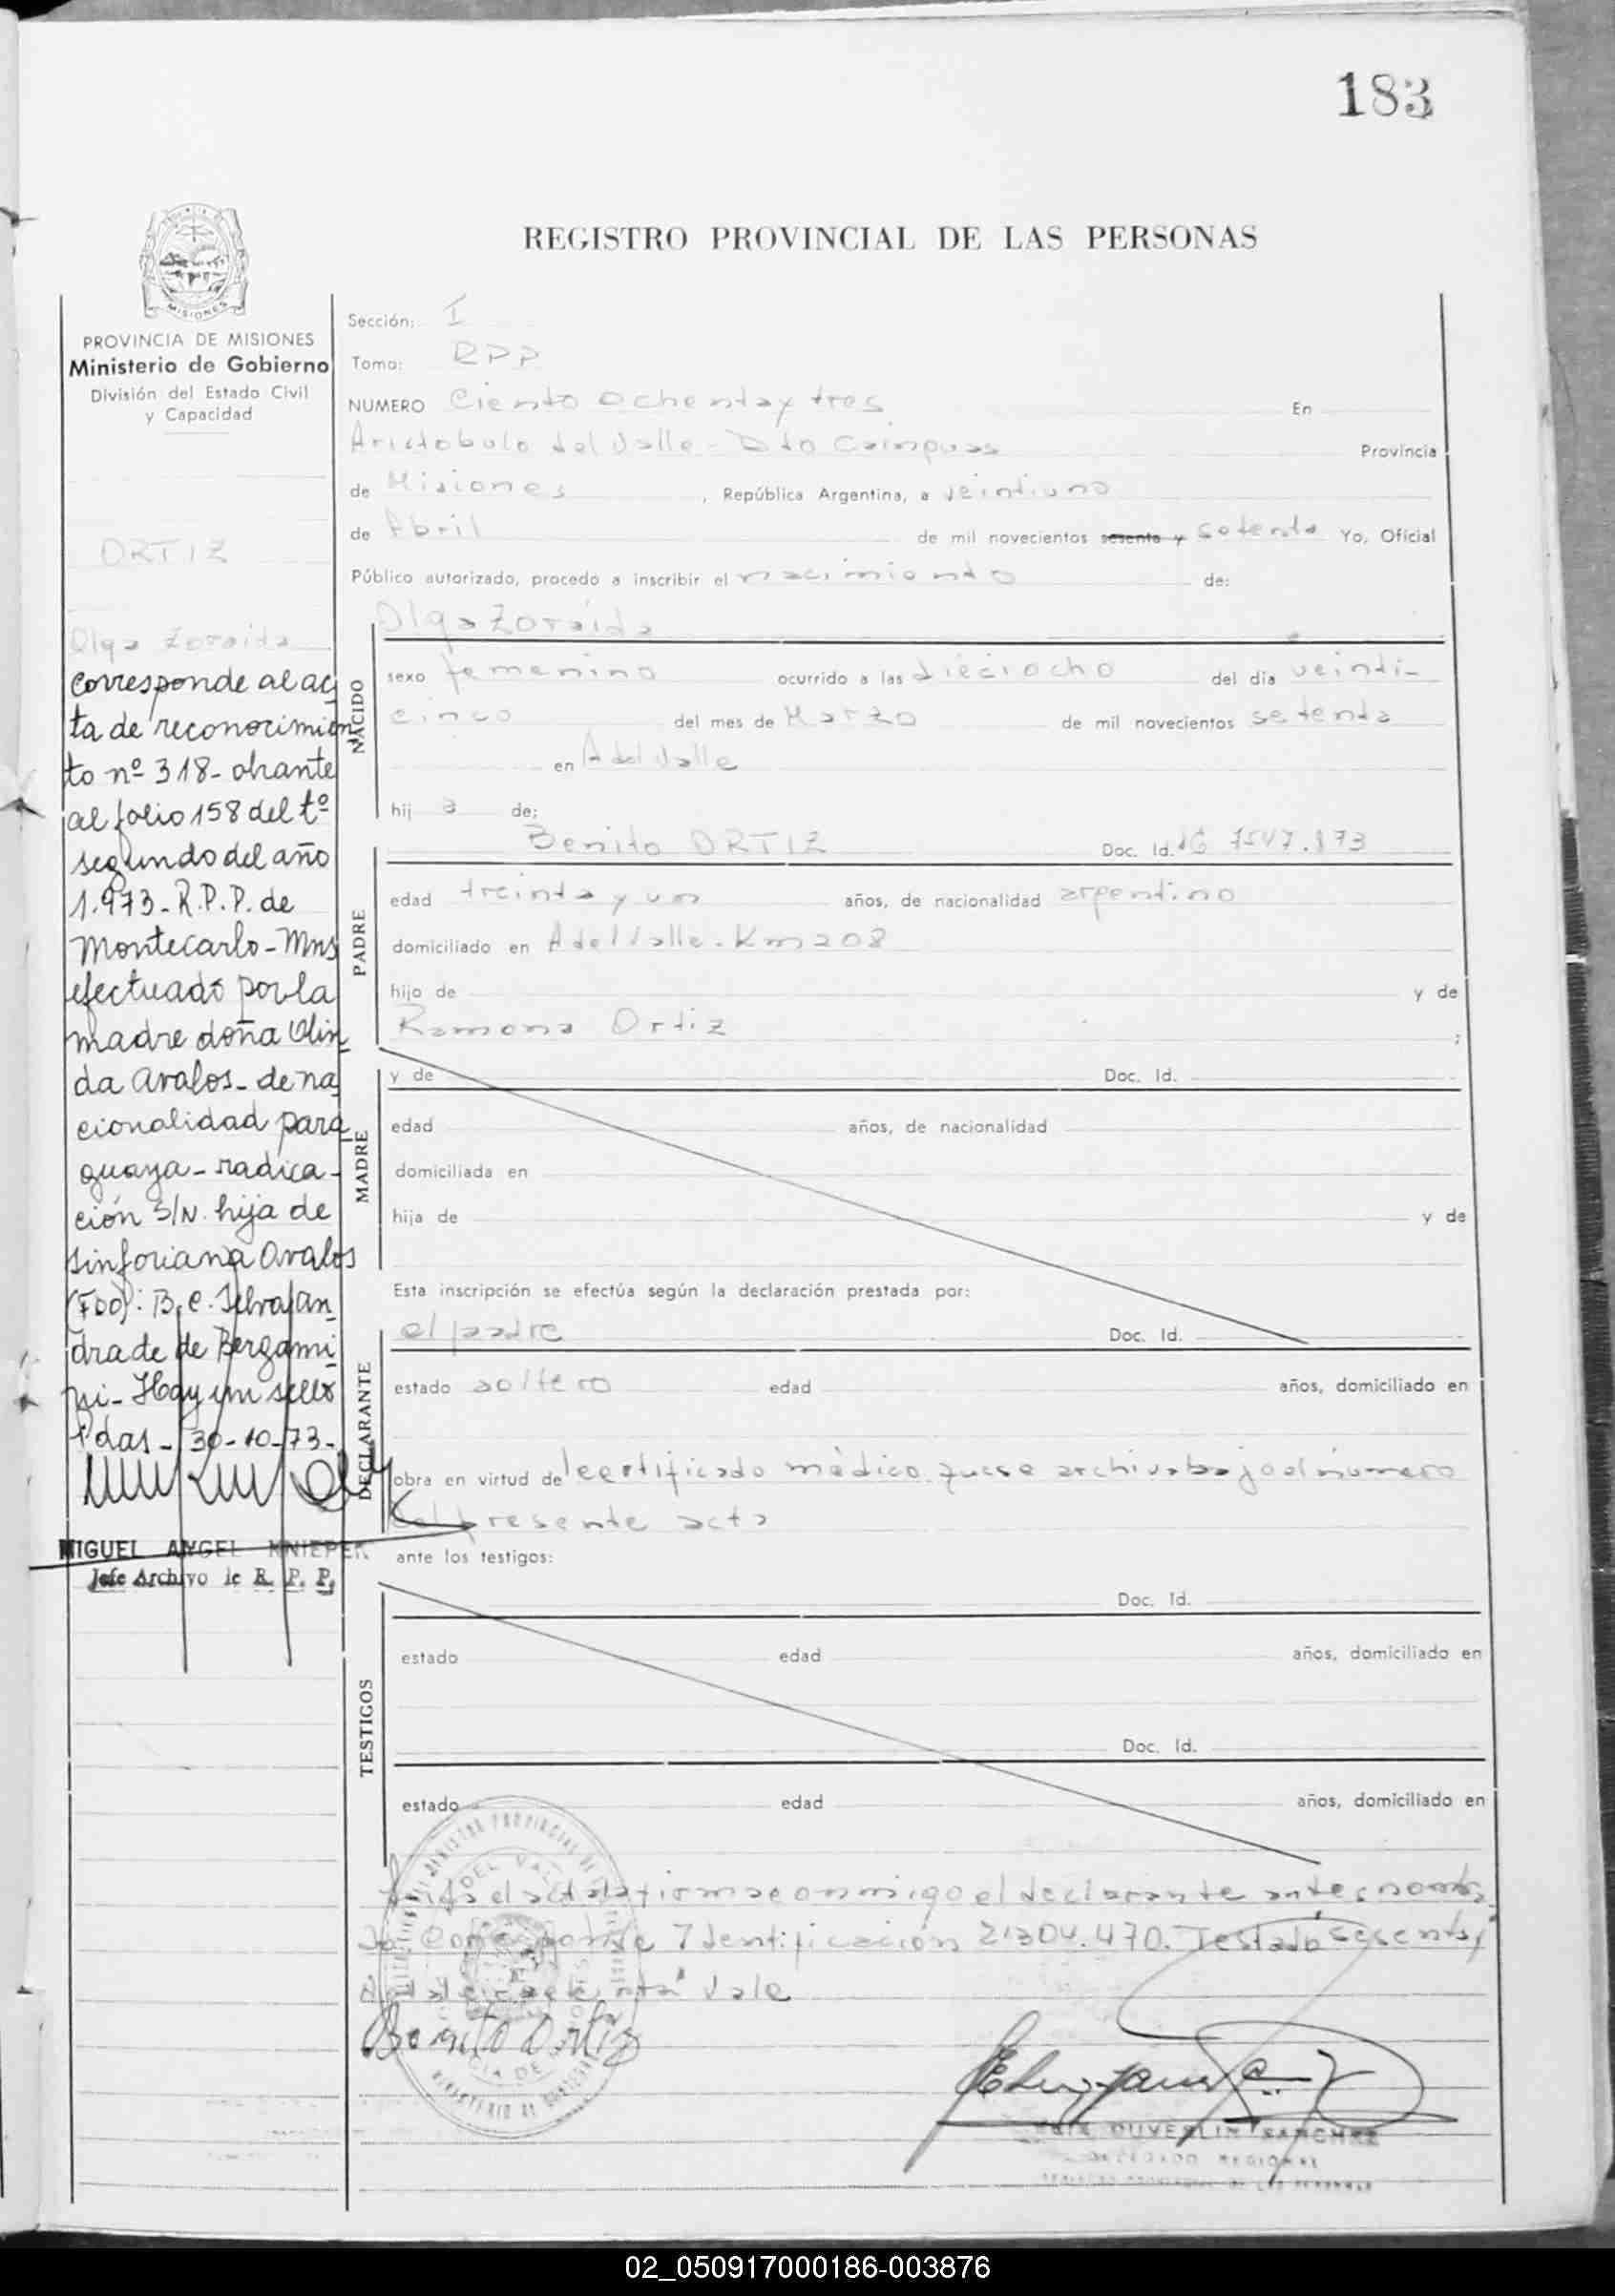 183
REGISTRO PROVINCIAL DE LAS PERSONAS
MISIONES
PROVINCIA DE MISIONES
Ministerio de Gobierno
División del Estado Civil
y Capacidad
ORTIZ
Olga Zoraida
corresponde al ac
ta de reconocimien
to nº 318- obrante
al folio 158 del tº
segundo del año
1.973- R.P.P. de
Montecarlo- Mns
efectuado por la
madre doña Olin
da Avalos- de na
cionalidad para
guaya- radica-
ción S/N. hija de
Sinforiana Avalos
(Fdo): B. e. Silva an
drade de Bergami
ni- Hay un sello
Pdas- 30-10-73-
MIGUEL ANGEL KNIEPEK
Jefe Archivo de R. P. P.
Sección: I
Tomo: RPP
NUMERO Ciento ochenta y tres En
Aristobulo del Valle - Dto Cainguas Provincia
de Misiones , República Argentina, a veintiuno
de Abril de mil novecientos sesenta y setenta Yo, Oficial
Público autorizado, procedo a inscribir el nacimiento de:
Olga Zoraida
NACIDO
sexo femenino ocurrido a las dieciocho del dia veinti-
cinco del mes de Marzo de mil novecientos setenta
en A del Valle
hij a de:
Benito ORTIZ Doc. Id. 7547.873
PADRE
edad treinta y un años, de nacionalidad argentino
domiciliado en A del Valle - Km 208
hijo de y de
Ramona Ortiz ;
MADRE
y de Doc. Id.
edad años, de nacionalidad
domiciliada en
hija de y de
Esta inscripción se efectúa según la declaración prestada por:
DECLARANTE
el padre Doc. Id.
estado soltero edad años, domiciliado en
obra en virtud del certificado médico que se archiva bajo el número
del presente acta
ante los testigos:
TESTIGOS
Doc. Id.
estado edad años, domiciliado en
Doc. Id.
estado edad años, domiciliado en
leida el acta la firma conmigo el declarante
Corresponde Identificación 21304.470. Testado "sesenta y
Vale
Benito Ortiz
DUVERLIN SANCHEZ
DELEGADO REGIONAL
REGISTRO PROVINCIAL DE LAS PERSONAS
02_050917000186-003876